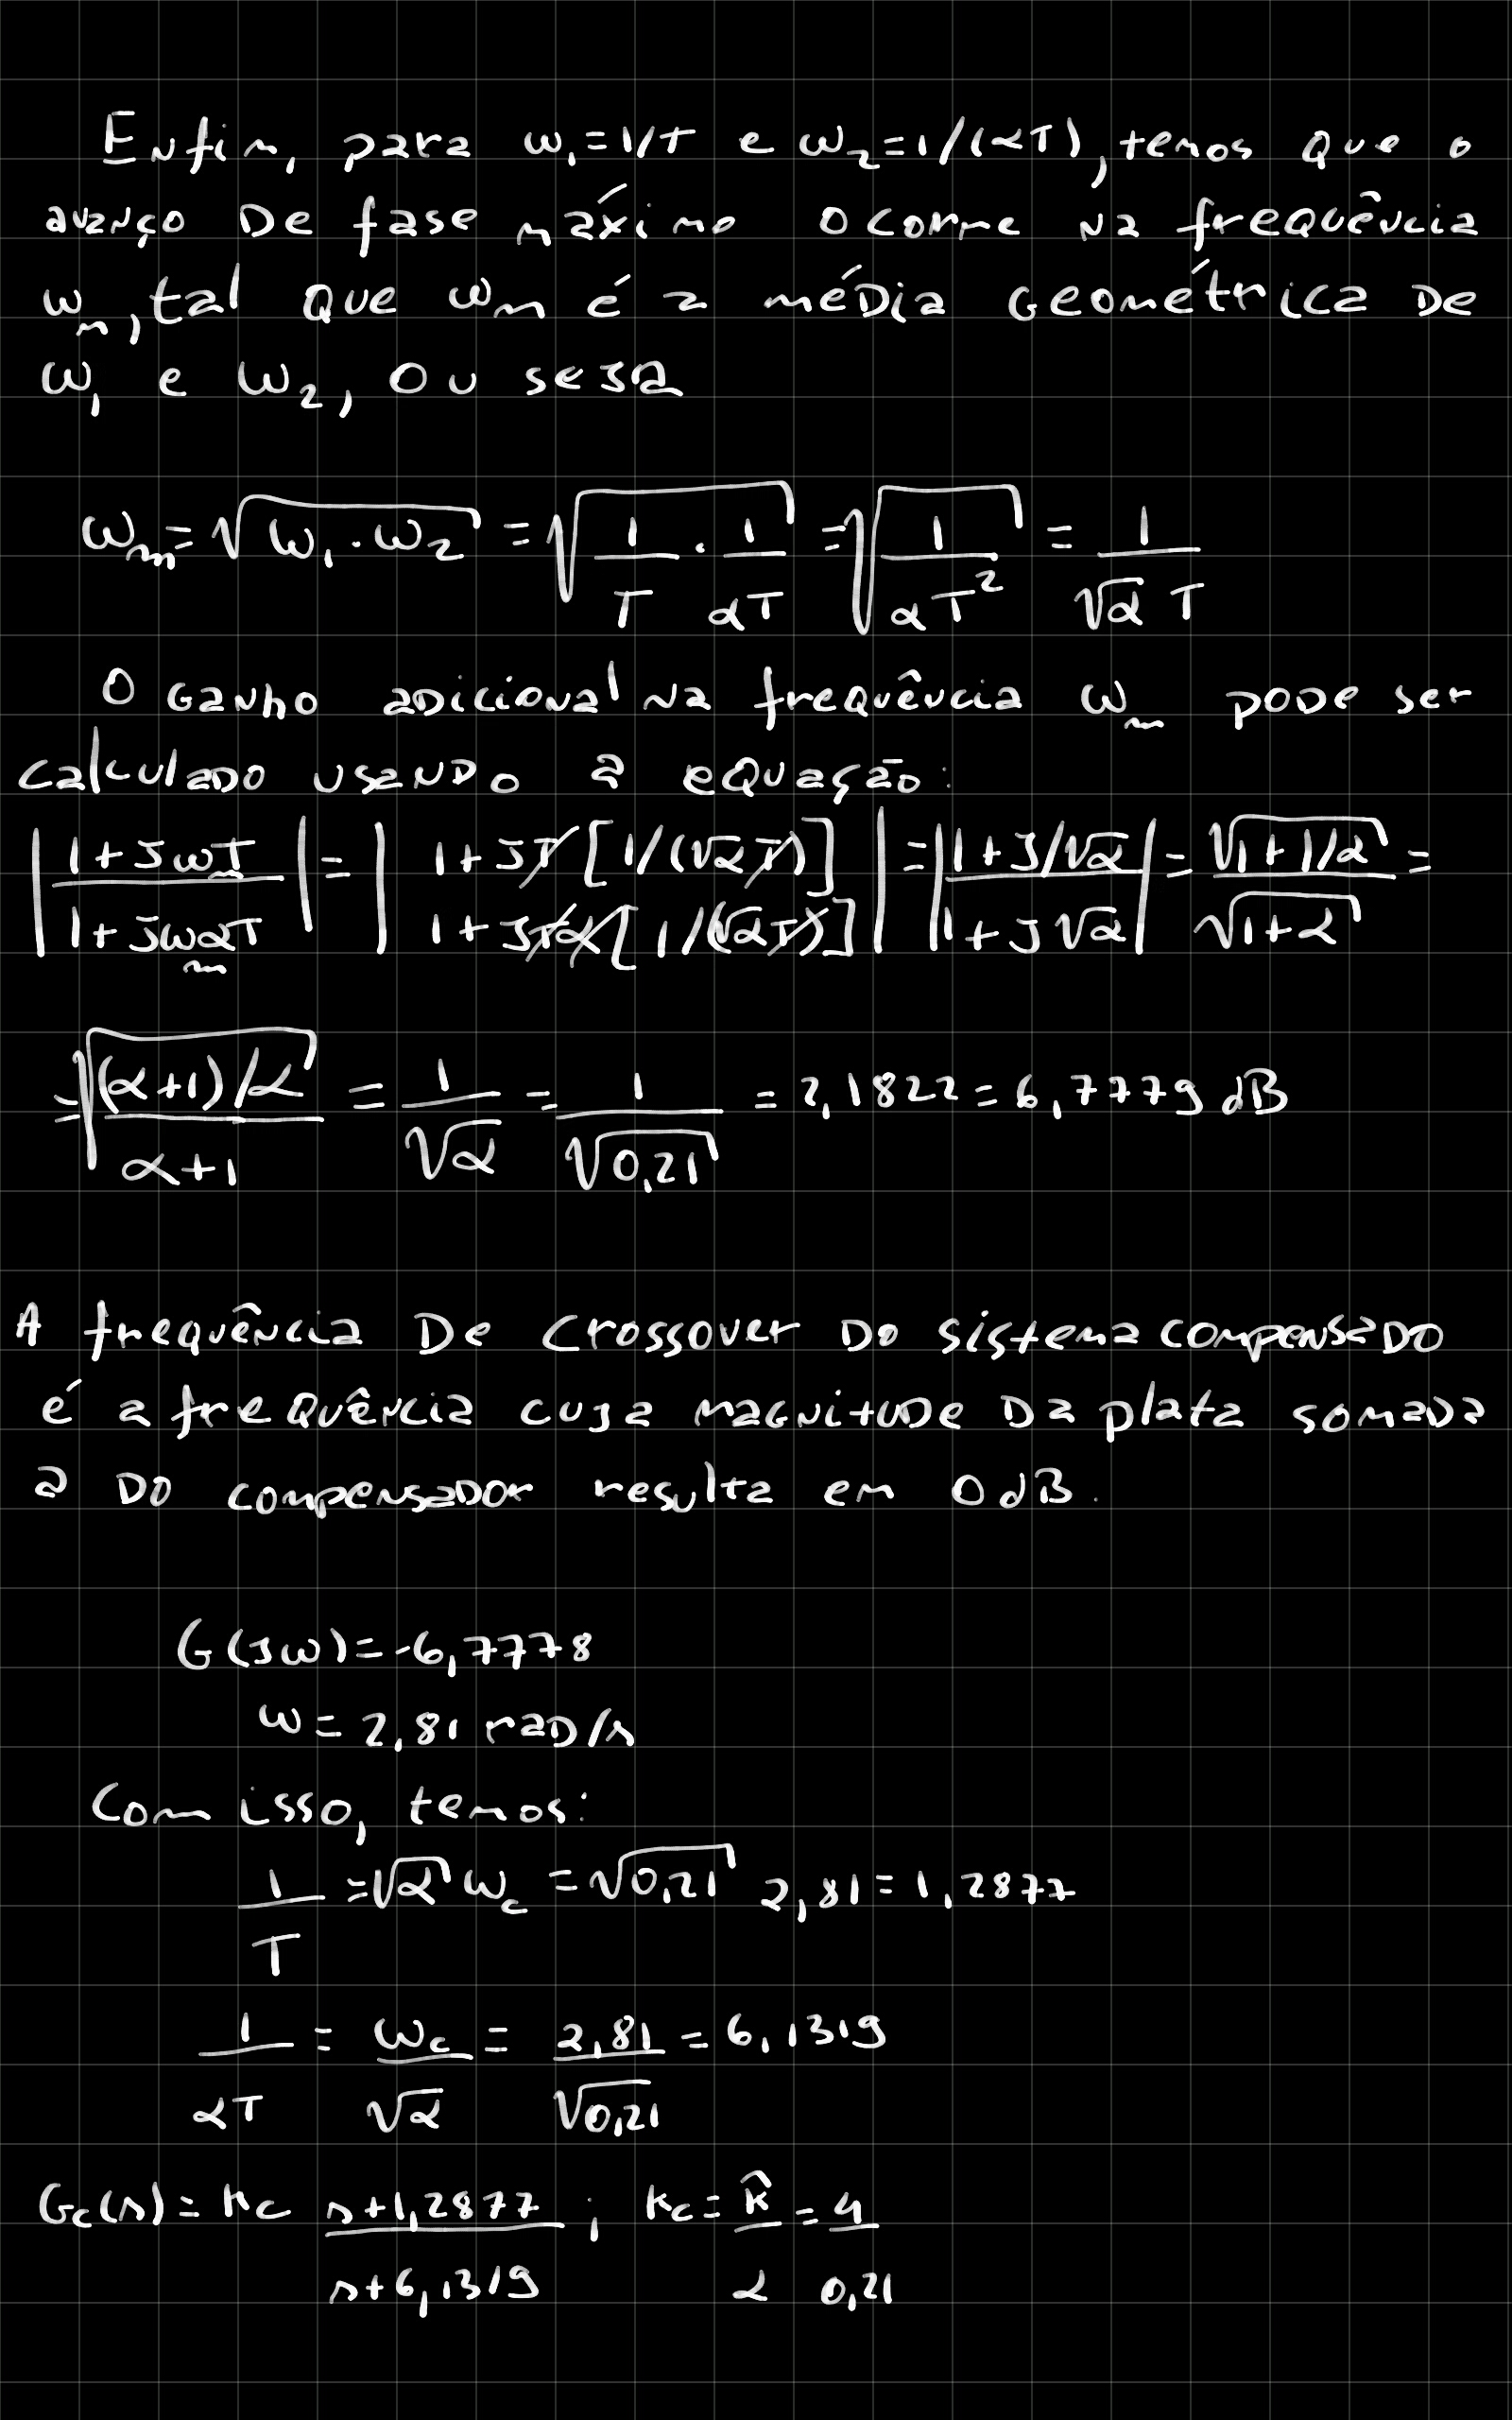 Enfim, para ω₁=1/T e ω₂=1/(αT), temos que o
avanço De fase máximo ocorre na frequência
ωₘ, tal que ωₘ é a média geométrica De
ω₁ e ω₂, ou seja
ωₘ=√(ω₁·ω₂) = √(1/T · 1/(αT)) = √(1/(αT²)) = 1/(√α T)
O ganho adicional na frequência ωₘ pode ser
calculado usando a equação:
|(1+jωₘT)/(1+jωₘαT)| = |(1+jT[1/(√αT)])/(1+jTα[1/(√αT)])| = |(1+j/√α)/(1+j√α)| = √(1+1/α)/√(1+α) =
=√(((α+1)/α)/(α+1)) = 1/√α = 1/√0,21 = 2,1822 = 6,7779 dB
A frequência De crossover Do sistema compensado
é a frequência cuja magnitude Da plata somada
a Do compensador resulta em 0dB.
G(jω)=-6,7778
ω=2,81 rad/s
Com isso, temos:
1/T = √α ω_c = √0,21 2,81 = 1,2877
1/(αT) = ω_c/√α = 2,81/√0,21 = 6,1319
Gc(s) = Kc (s+1,2877)/(s+6,1319) ; Kc = K̂/α = 4/0,21